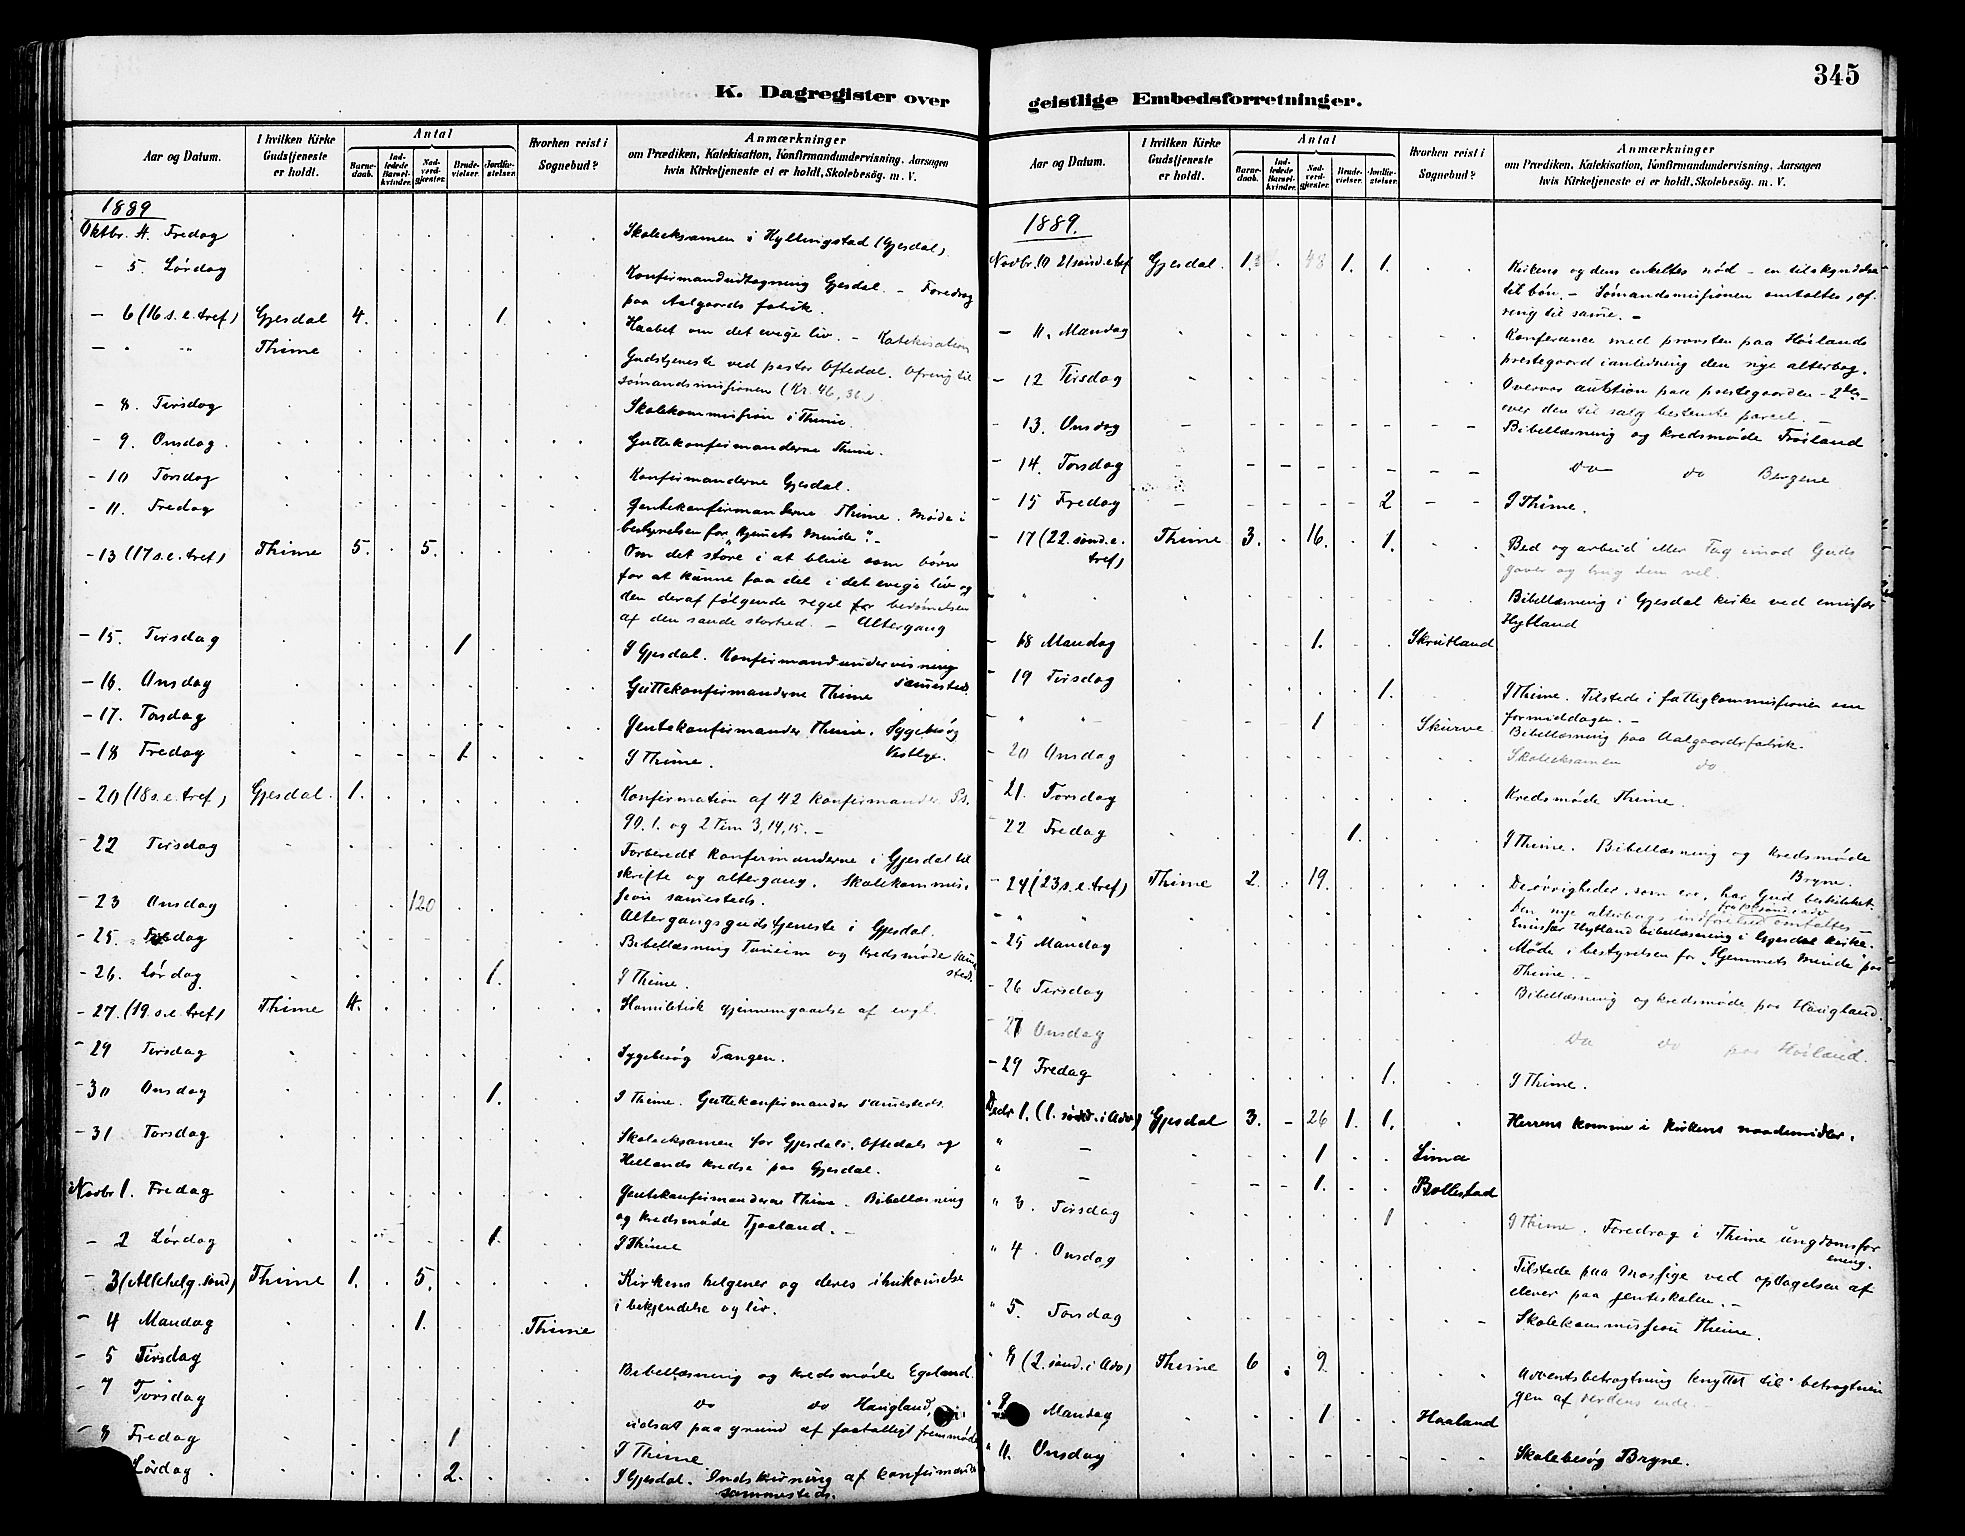 345
K. Dagregister over
Aar og Datum. I hvilken Kirke Gudstjeneste er holdt. Antal Barnedaab. Indledede Barselkvinder. Nadverdgjester. Brudevielser. Jordfæstelser. Hvorhen reist i Sognebud? Anmærkninger om Prædiken, Katekisation, Konfirmandundervisning, Aarsagen hvis Kirketjeneste ei er holdt, Skolebesøg. m. V.
1889
Oktbr. 4. Fredag Skoleeksamen i Kyllingstad (Gjesdal).
- 5. Lørdag Konfirmandudtagning Gjesdal. - Foredrag
paa Aalgaards fabrik.
- 6 (16 s. e. tref) Gjesdal 4. 1. Haabet om det evige liv. - Katekisation
- " " Thime Gudstjeneste ved pastor Oftedal. Ofring til
sømandsmissionen (Kr. 46, 36.)
- 8. Tirsdag Skolekommission i Thime
- 9. Onsdag. Guttekonfirmanderne Thime.
- 10 Torsdag Konfirmanderne Gjesdal.
- 11. Fredag Jentekonfirmanderne Thime. Møde i
bestyrelsen for "Hjemmets Minde". -
- 13 (17 s. e. tref) Thime 5. 5. Om det store i at blive som børn
for at kunne faa del i det evige liv og
den deraf følgende regel for bedømelsen
af den sande storhed. - Altergang
- 15. Tirsdag 1 I Gjesdal. Konfirmandundervisning
samesteds.
- 16. Onsdag Guttekonfirmanderne Thime
- 17. Torsdag Jentekonfirmander Thime. Sygebesøg
Vestlye.
- 18 Fredag 1. I Thime.
- 20 (18 s. e. tref) Gjesdal. 1. Konfirmation af 42 konfirmander. Ps.
90. 1. og 2 Tim 3, 14, 15. -
- 22 Tirsdag Forberedt konfirmanderne i Gjesdal til
skrifte og altergang. Skolekommis-
sion samesteds.
- 23 Onsdag 120 Altergangsgudstjeneste i Gjesdal.
- 25. Fredag Bibellæsning Tunheim og Kredsmøde same
steds.
- 26. Lørdag 1. I Thime.
- 27. (19. s. e. tref) Thime 4. Homiletisk gjennemgaaelse af evgl.
- 29 Tirsdag Sygebesøg Tangen.
- 30 Onsdag 1. I Thime. Guttekonfirmander samesteds.
- 31 Torsdag Skoleeksamen for Gjesdals, Oftedals og
Hellands kredse paa Gjesdal.
Novbr 1. Fredag Jentekonfirmanderne Thime. Bibellæsning
og kredsmøde Tjaaland. -
- 2 Lørdag 1. I Thime
- 3 (Allehelg. sønd) Thime 1. 5. Kirkens helgener og deres ihukomelse
i bekjendelse og liv.
- 4 Mandag 1. Thime
- 5 Tirsdag Bibellæsning og kredsmøde Egeland.
- 7 Torsdag do do Haugland,
udsat paa grund af faatalligt fremmøde
- 8 Fredag 1 I Thime
Lørdag. 2. I Gjesdal. Indskrivning af konfirmander
sammesteds.
geistlige Embedsforretninger.
Aar og Datum. I hvilken Kirke Gudstjeneste er holdt. Antal Barnedaab. Indledede Barselkvinder. Nadverdgjester. Brudevielser. Jordfæstelser. Hvorhen reist i Sognebud? Anmærkninger om Prædiken, Katekisation, Konfirmandundervisning, Aarsagen hvis Kirketjeneste ei er holdt, Skolebesøg. m. V.
1889.
Novbr. 10 21 sønd. e. tref Gjesdal. 48 1. 1. Kirkens og dens enkeltes nød - en tilskyndelse
til bøn. - Sømandsmissionen omtaltes, of-
ring til samme. -
- 11. Mandag Konferance med provsten paa Høilands
prestegaard i anledning den nye alterbog.
- 12 Tirsdag Overvar auktion paa prestegaarden -
over den til salg bestemte parcel -
- 13. Onsdag Bibellæsning og kredsmøde Frøiland
- 14. Torsdag do do Bergene
- 15 Fredag 2 I Thime.
- 17 (22. sønd. e. tref) Thime 3. 16. 1. "Bed og arbeid" eller Tag imod Guds
gaver og brug dem vel.
" Bibellæsning i Gjesdal kirke ved emissær
Hytland
- 18 Mandag 1. Skrutland
- 19 Tirsdag 1. I Thime. Tilstede i fattigkommissionen om
formiddagen. -
" " 1 Skurve Bibellæsning paa Aalgaards fabrik.
- 20 Onsdag Skoleeksamen do
- 21. Torsdag Kredsmøde Thime.
- 22 Fredag 1. I Thime. Bibellæsning og kredsmøde
Bryne.
- 24 (23 s. e. tref) Thime 2. 19. De øvrigheder, som ere, har Gud beskikket.
Den nye alterbogs indførelse fra 1ste sønd. i adv omtaltes -
" " Emissær Hytland bibellæsning i Gjesdal kirke.
- 25 Mandag Møde i bestyrelsen for "Hjemmets Minde" paa
Thime. -
- 26 Tirsdag Bibellæsning og kredsmøde paa Haugland.
- 27 Onsdag do do paa Høiland.
- 29 Fredag 1. I Thime.
Decbr 1. (1. sønd. i Adv) Gjesdal 3. - 26 1. 1. Herrens komme i kirkens naademidler.
" - 1 Lima
" - 1. Bollestad
" 3. Tirsdag 1 I Thime. Foredrag i Thime ungdomsfor
ening.
" 4. Onsdag Tilstede paa Mossige ved optagelsen af
elever paa jenteskolen. -
" 5. Torsdag Skolekommission Thime.
" 8 (2. sønd. i Adv) Thime 6 9 Adventsbetragtning knyttet til betragtnin
gen af verdens ende.
" 9 Mandag 1 Haaland
" 11. Onsdag Skolebesøg Bryne.